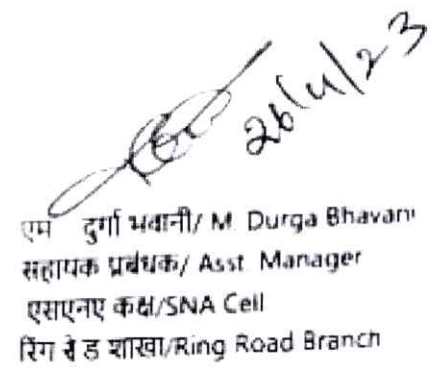 26/4/23
एम दुर्गा भवानी/ M. Durga Bhavani
सहायक प्रबंधक/ Asst. Manager
एसएनए कक्ष/SNA Cell
रिंग रोड शाखा/Ring Road Branch